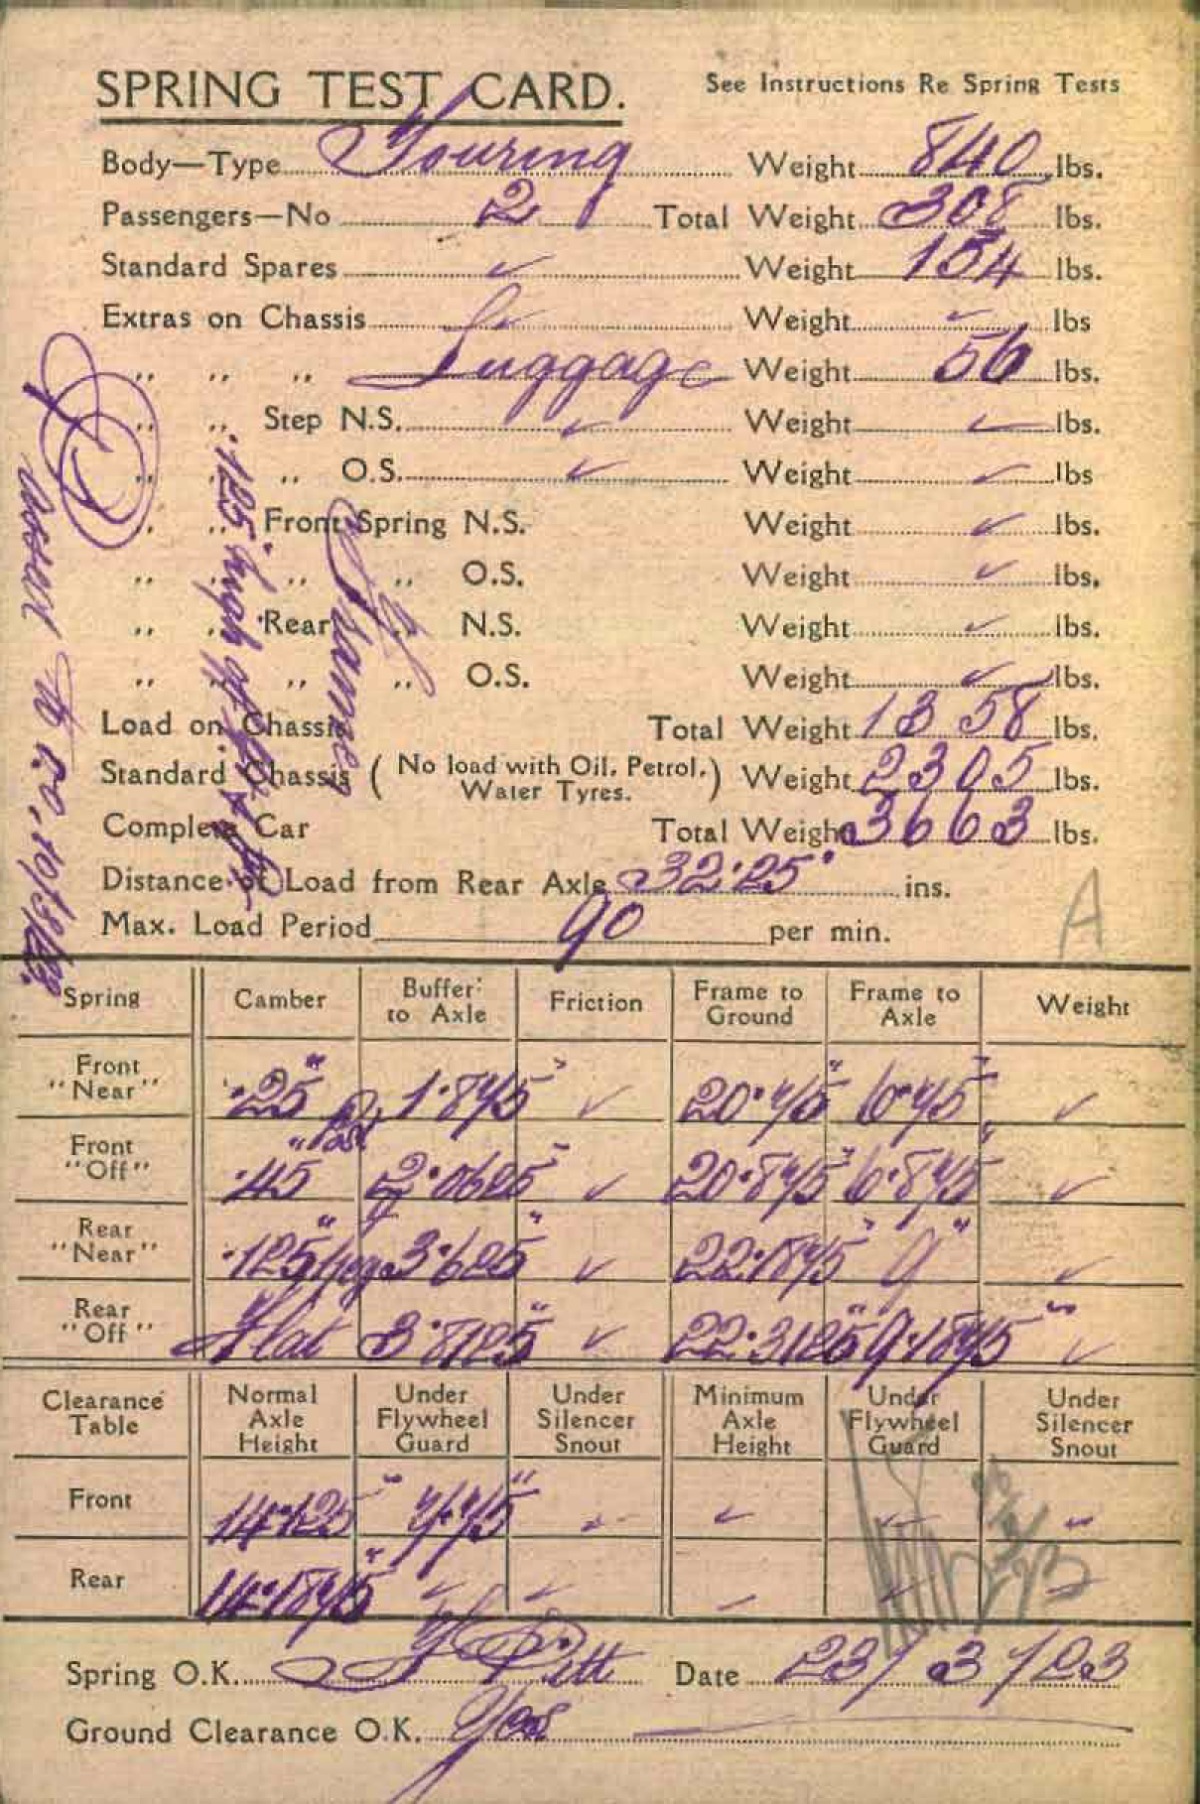 SPRING TEST CARD. See Instructions Re Spring Tests
Body—Type Touring Weight 840 lbs.
Passengers—No 2 Total Weight 308 lbs.
Standard Spares ✓ Weight 154 lbs.
Extras on Chassis ✓ Weight ✓ lbs
,, ,, ,, Luggage Weight 56 lbs.
,, ,, Step N.S. ✓ Weight ✓ lbs.
,, ,, ,, O.S. ✓ Weight ✓ lbs
,, ,, Front Spring N.S. Weight ✓ lbs.
,, ,, ,, ,, O.S. Weight ✓ lbs.
,, ,, Rear ,, N.S. Weight ✓ lbs.
,, ,, ,, ,, O.S. Weight ✓ lbs.
Load on Chassis Total Weight 1358 lbs.
Standard Chassis ( No load with Oil, Petrol, Water Tyres. ) Weight 2305 lbs.
Complete Car Total Weight 3663 lbs.
Distance of Load from Rear Axle 32·25" ins.
Max. Load Period 90 per min.
·125" high off
Frame
Spring Camber Buffer to Axle Friction Frame to Ground Frame to Axle Weight
Front "Near" ·25" 1·875" ✓ 20·75" 6·75" ✓
Front "Off" ·45" 2·0625" ✓ 20·875" 6·875" ✓
Rear "Near" ·125" neg 3·625" ✓ 22·1875" 9" ✓
Rear "Off" Flat 3·8125" ✓ 22·3125" 9·1875" ✓
Clearance Table Normal Axle Height Under Flywheel Guard Under Silencer Snout Minimum Axle Height Under Flywheel Guard Under Silencer Snout
Front 14·125" 7·75" ✓ ✓ ✓ ✓
Rear 14·1875" ✓ ✓ ✓ ✓ ✓
Spring O.K. Pitt Date 23/3/23
Ground Clearance O.K. Yes
A